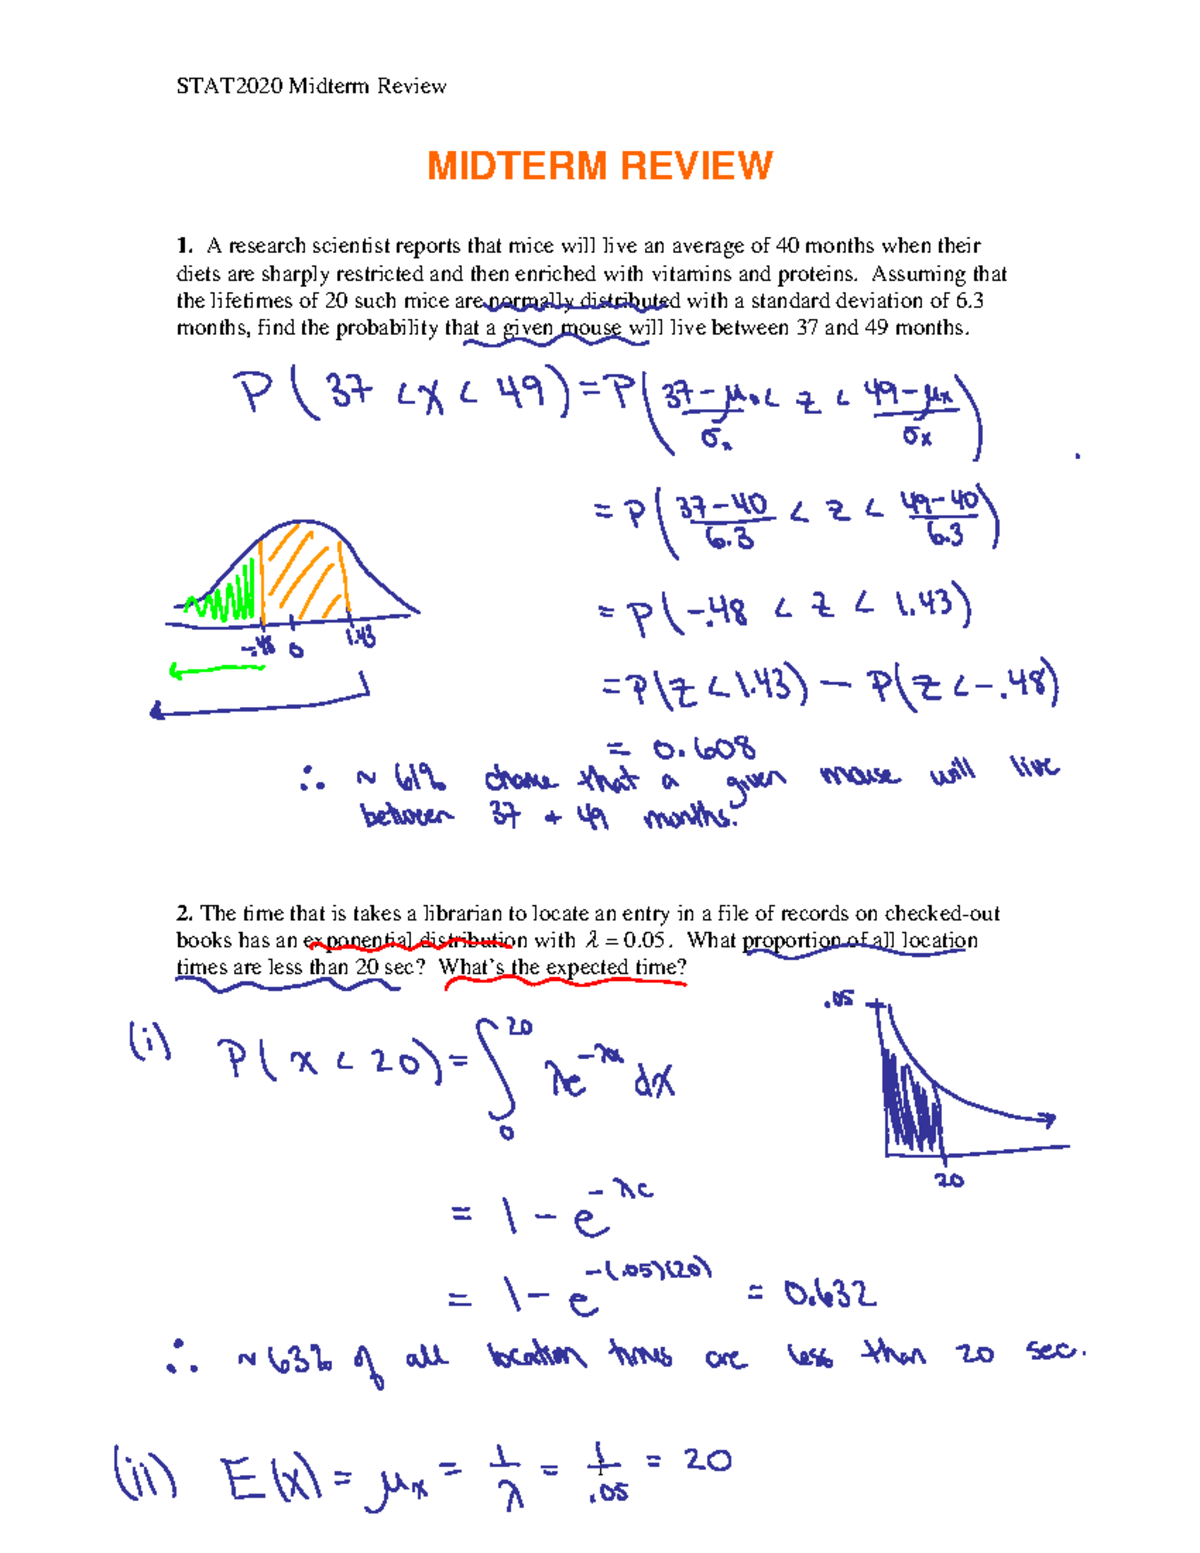 STAT2020 Midterm Review
MIDTERM REVIEW
1. A research scientist reports that mice will live an average of 40 months when their
diets are sharply restricted and then enriched with vitamins and proteins. Assuming that
the lifetimes of 20 such mice are normally distributed with a standard deviation of 6.3
months, find the probability that a given mouse will live between 37 and 49 months.
P(37 < X < 49) = P((37 - μx)/σx < Z < (49 - μx)/σx)
= P((37 - 40)/6.3 < Z < (49 - 40)/6.3)
= P(-.48 < Z < 1.43)
-.48 0 1.43
= P(Z < 1.43) - P(Z < -.48)
= 0.608
∴ ~ 61% chance that a given mouse will live
between 37 + 49 months.
2. The time that is takes a librarian to locate an entry in a file of records on checked-out
books has an exponential distribution with λ = 0.05. What proportion of all location
times are less than 20 sec? What's the expected time?
.05
(i) P(x < 20) = ∫₀²⁰ λe^(-λx) dx
20
= 1 - e^(-λc)
= 1 - e^(-(.05)(20)) = 0.632
∴ ~ 63% of all location times are less than 20 sec.
(ii) E(x) = μx = 1/λ = 1/.05 = 20